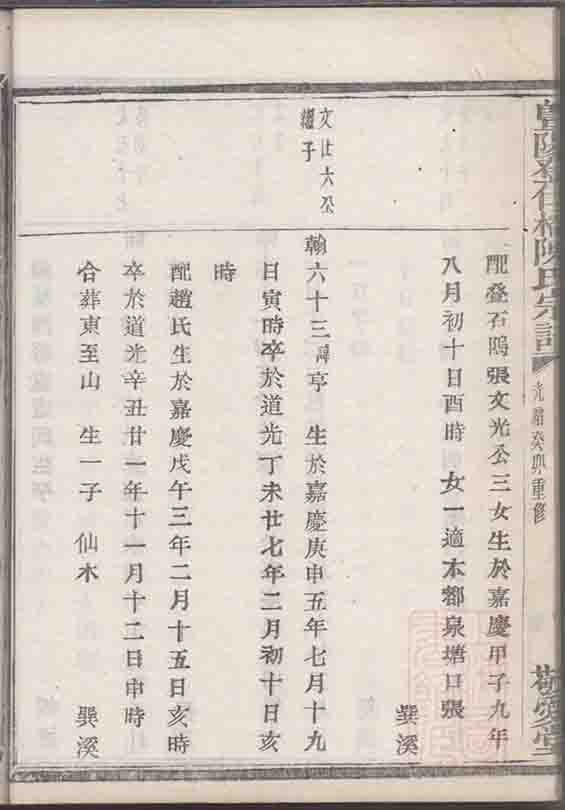 陳氏宗譜
光緒癸卯重修
敬愛堂
配叠石塢張文光公三女生於嘉慶甲子九年
八月初十日酉時 女一適本都泉塘口張
巽溪
文仕六公
繼子
翰六十三諱亨 生於嘉慶庚申五年七月十九
日寅時卒於道光丁未廿七年二月初十日亥
時
配趙氏生於嘉慶戊午三年二月十五日亥時
卒於道光辛丑廿一年十一月十二日申時
合葬東至山 生一子 仙木 巽溪